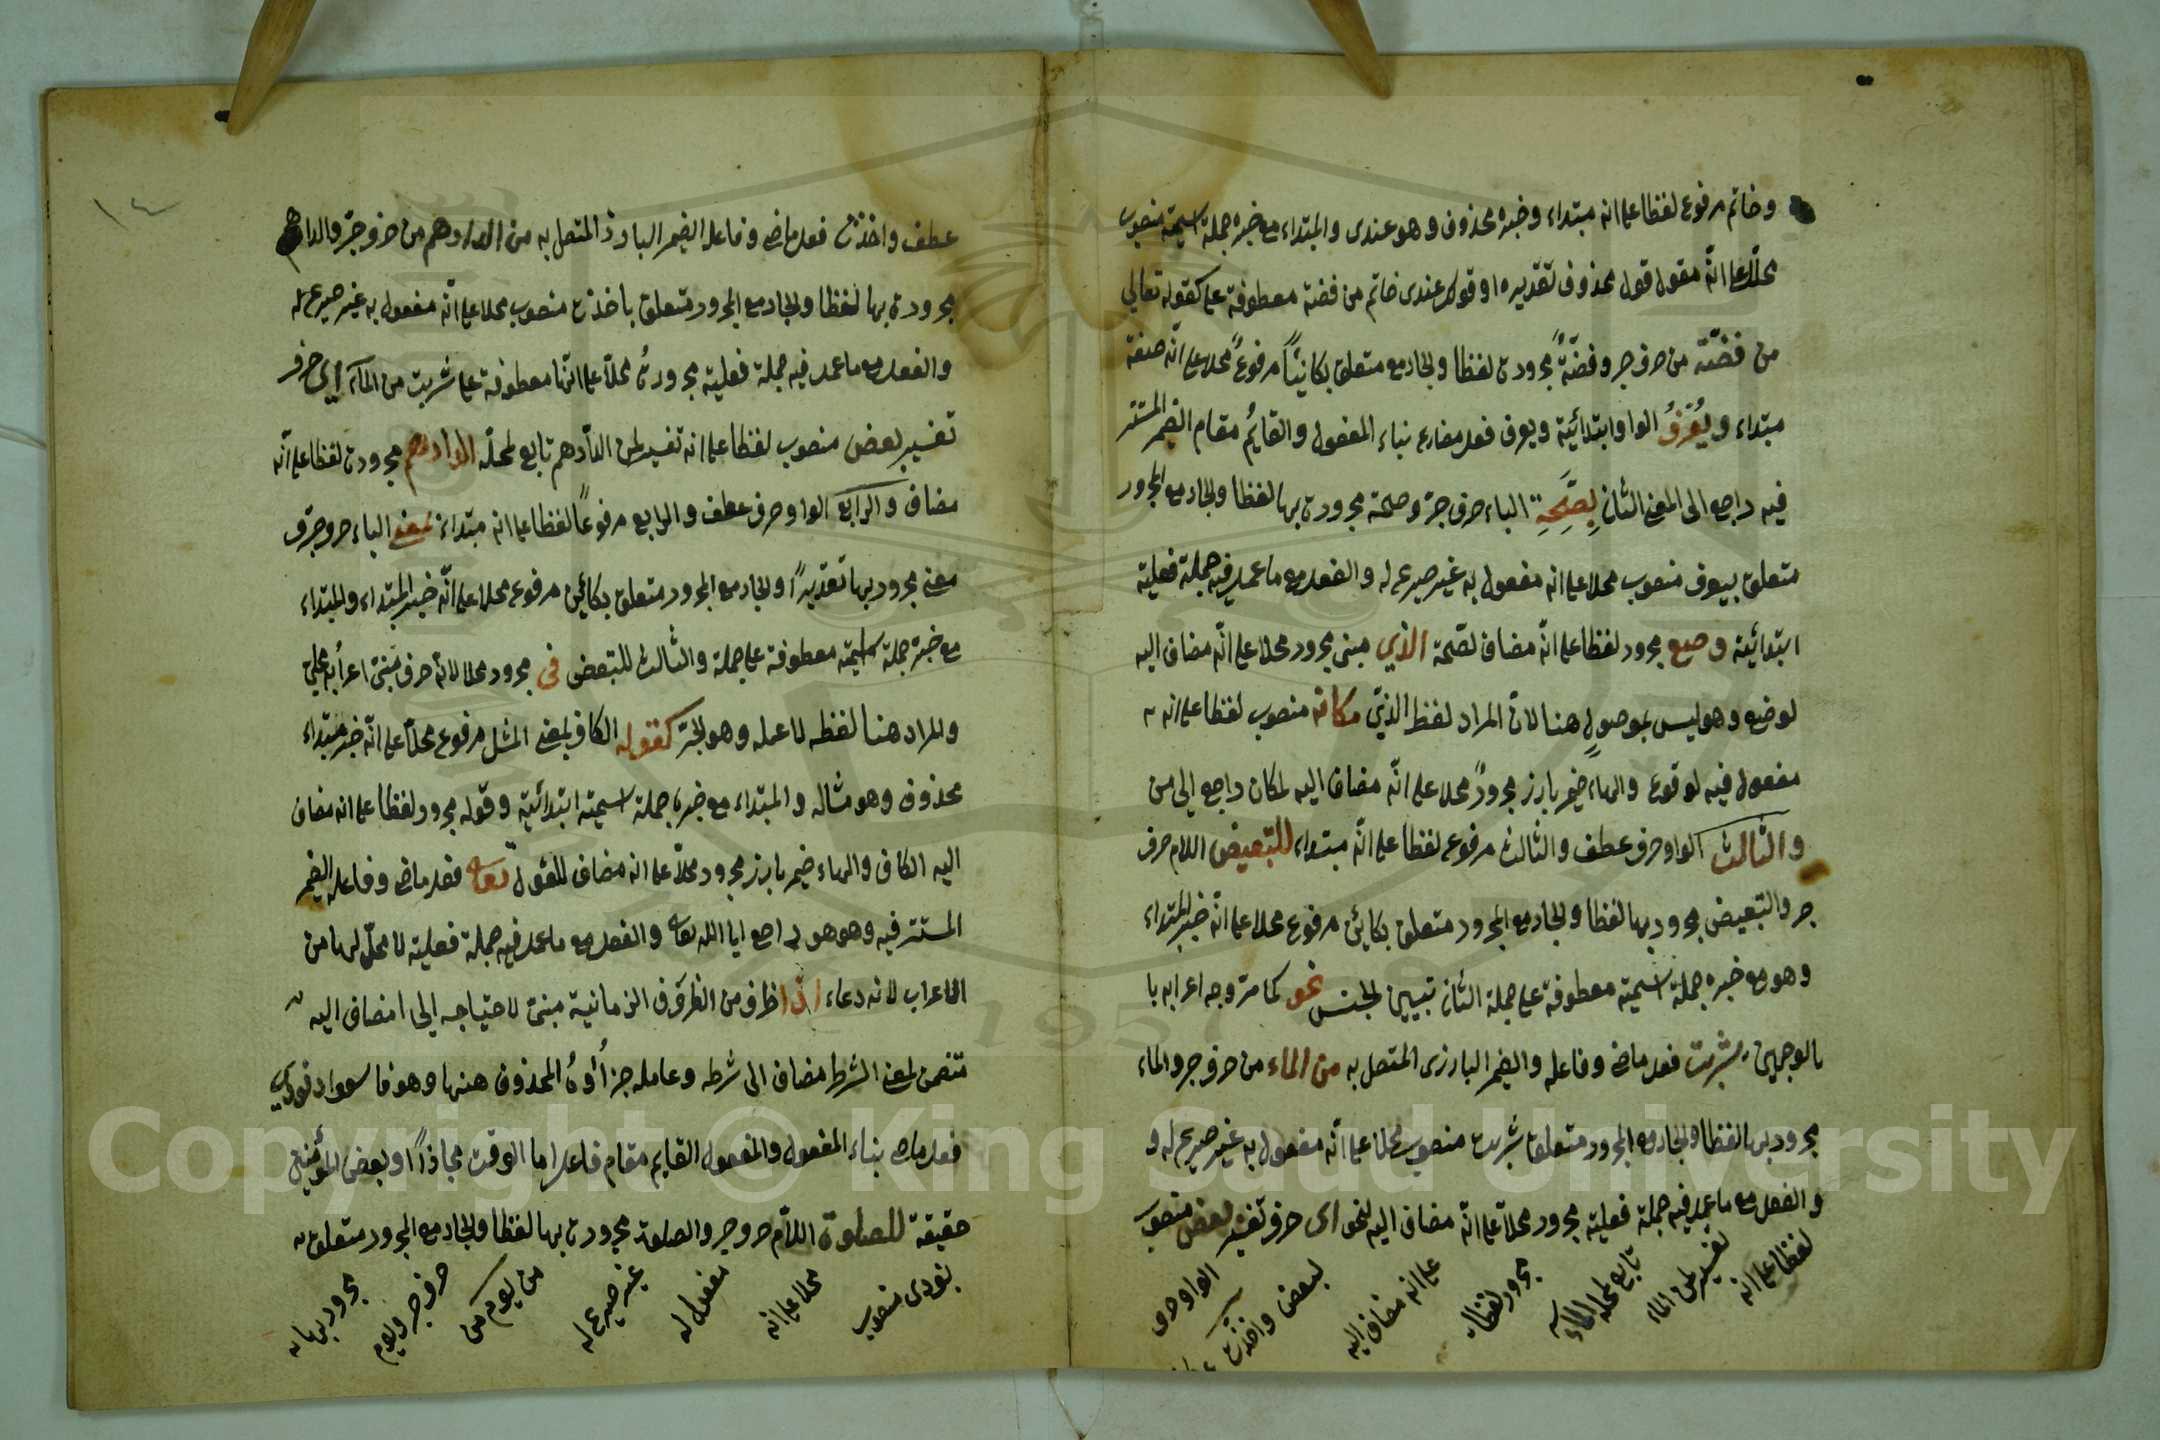 وخاتم مرفوع لفظا على انه مبتداء وخبره محذوف وهو عندى والمبتداء مع خبره جملة اسمية منصوب
محلا على انّه مقول قول محذوف تقديره او قولك عندى خاتم من فضة معطوفة على كقوله تعالي
من فضّة من حرف جر وفضّة مجرورة لفظا والجار مع متعلق بكائنا مرفوع محلا على انّه صفة
مبتداء ويُعْرَفُ الواو ابتدائية ويعرف فعل مضارع بناء المفعول والقايم مقام الضمير المستتر
فيه راجع الى المعنى الثانى بِصِحَّةِ الباء حرف جر وصحة مجرورة بها لفظا والجار مع المجرور
متعلق بيعرف منصوب محلا على انه مفعول به غير صريح له والفعل مع ما عمل فيه جملة فعلية
ابتدائية وضع مجرور لفظا على انّه مضاف لصّحة الذي مبنى مجرور محلا على انّه مضاف اليه
لوضع وهو ليس بموصول هنا لان المراد لفظ الذّي مكانه منصوب لفظا على انه
مفعول فيه لوقوع والهاء ضمير بارز مجرور محلا على انّه مضاف اليه لمكان راجع الى من
والثالث الواو حرف عطف والثالث مرفوع لفظا على انّه مبتداء للتبعيض اللام حرف
جر والتبعيض مجرور بها لفظا والجار مع المجرور متعلق بكاين مرفوع محلا على انّه خبر المبتداء
وهو مع خبره جملة اسمية معطوفة على جملة الثانى تبيين الجنس نحو كما مرّ وجه اعرابه با
بالوجهين شربت فعل ماض وفاعله والضمير البارزى المتصل به من الماء من حرف جر والماء
مجرور بها لفظا والجار مع المجرور متعلق شربت منصوب محلا على انّه مفعول به غير صريح له و
والفعل مع ما عمل فيه جملة فعلية مجرور محلا على انّه مضاف اليه لنحو اى حرف تفسير بعض منصوب
لفظا على انه
تفسير لمن الماء
تابع لمحله الماء
مجرور لفظا
على انه مضاف اليه
لبعض واخذت
الواو حرف
عطف واخذت فعل ماض وفاعله الضمير البارز المتصل به من الدراهم من حرف جرّ والدراهم
مجرورة بها لفظا والجار مع المجرور متعلق باخذت منصوب محلا على انّه مفعول به غير صريح له
والفعل مع ما عمل فيه جملة فعلية مجرورة محلا على انّها معطوفة على شربت من الماء اى حرف
تفسير بعض منصوب لفظا على انه تفسير لمن الدّراهم تابع لمحلّه الدراهم مجرورة لفظا على انّه
مضاف والرابع الواو حرف عطف والرابع مرفوعا لفظا على انه مبتداء بمعنى الباء حرف جر
معنى مجرور بها تقديرًا والجار مع المجرور متعلق بكائن مرفوع محلا على انّه خبر المبتداء والمبتداء
مع خبره جملة اسمية معطوفة على جملة والثالث للتبعيض فى مجرور محلا لانه حرف مبنى اعرابه محلى
والمراد هنا لفظه لا عمله وهو الجرّ كقوله الكاف بمعنى المثل مرفوع محلا على انّه خبر مبتداء
محذوف وهو مثاله والمبتداء مع خبره جملة اسمية ابتدائية وقوله مجرور لفظا على انه مضاف
اليه الكاف والهاء ضمير بارز مجرور محلا على انه مضاف للقول تعالى فعل ماض وفاعله الضمير
المستتر فيه وهو هو راجع ايا الله تعالى والفعل مع ما عمل فيه جملة فعلية لا محلّ لها من
الاعراب لانه دعاء اذا ظرف من الظروف الزمانية مبنى لاحتياجه الى مضاف اليه
تضمن لمعنى الشرط مضاف الى شرطه وعامله جزاؤه المحذوف هنها وهو فاسعوا نودي
فعل ماض بناء المفعول والمفعول القايم مقام فاعله اما الوقت مجازًا او بعض المؤمنين
حقيقة للصلوة اللام حرف جر والصلوة مجرورة بها لفظا والجار مع المجرور متعلق به
بنودى منصوب
محلا على انه
مفعول له
غير صريح له
من يوم من
حرف جر ويوم
مجرور بها
١٤
Copyright © King Saud University
1957